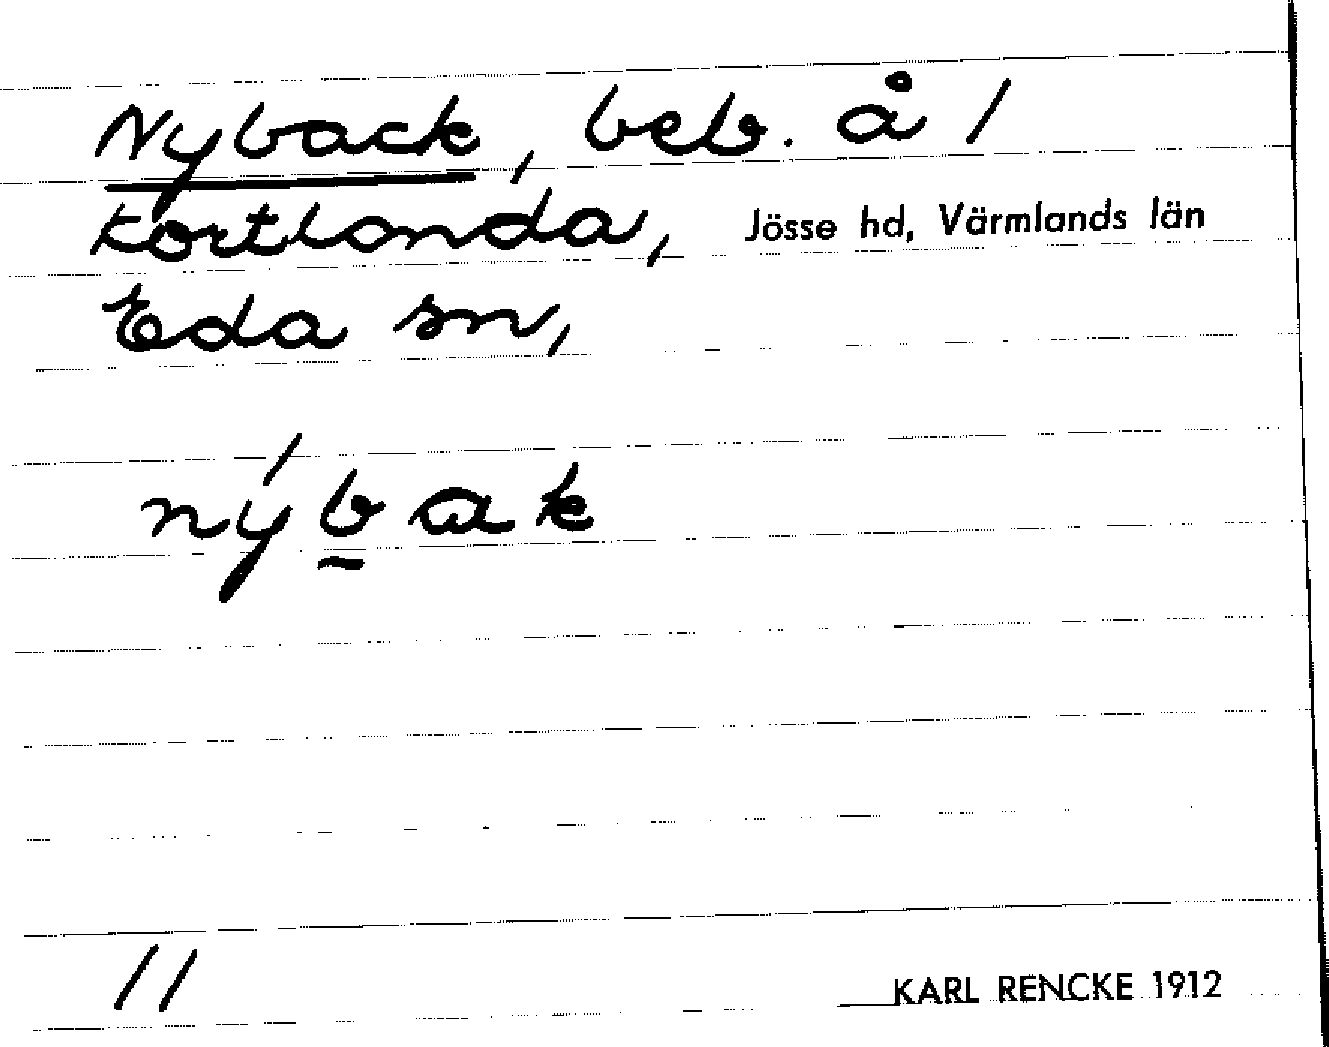 Nyback, beb. å /
Kortlanda, Jösse hd, Värmlands län
Eda sn,
nýb̲ak
11
KARL RENCKE 1912